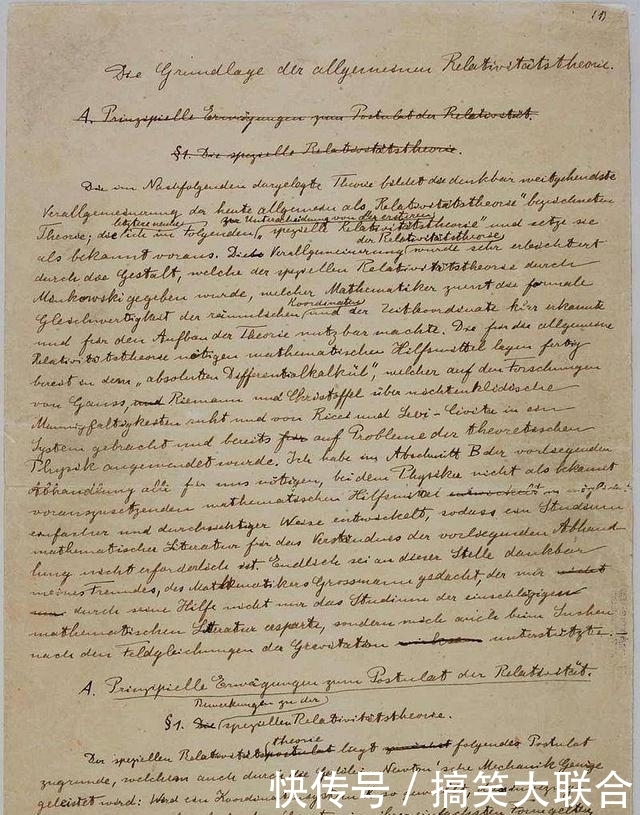 (1)
Die Grundlage der allgemeinen Relativitätstheorie.
A. Prinzipielle Erwägungen zum Postulat der Relativität.
§1. Die spezielle Relativitätstheorie.
Die im Nachfolgenden dargelegte Theorie bildet die denkbar weitgehendste
Verallgemeinerung der heute allgemein als „Relativitätstheorie" bezeichneten
letztere nenne zur Unterscheidung von der ersteren
Theorie; die ich im folgenden „spezielle Relativitätstheorie" und setze sie
der Relativitätstheorie
als bekannt voraus. Die Verallgemeinerung wurde sehr erleichtert
durch die Gestalt, welche der speziellen Relativitätstheorie durch
Minkowski gegeben wurde, welcher Mathematiker zuerst die formale
Koordinaten
Gleichwertigkeit der räumlichen und der Zeitkoordinate klar erkannte
und für den Aufbau der Theorie nutzbar machte. Die für die allgemeine
Relativitätstheorie nötigen mathematischen Hilfsmittel lagen fertig
bereit in dem „absoluten Differentialkalkül", welcher auf den Forschungen
von Gauss, und Riemann und Christoffel über nichteuklidische
Mannigfaltigkeiten ruht und von Ricci und Levi-Civita in ein
System gebracht und bereits für auf Probleme der theoretischen
Physik angewendet wurde. Ich habe im Abschnitt B der vorliegenden
Abhandlung alle für uns nötigen, bei dem Physiker nicht als bekannt
vorauszusetzenden mathematischen Hilfsmittel entwickelt in möglichst
einfacher und durchsichtiger Weise entwickelt, sodass ein Studium
mathematischer Literatur für das Verständnis der vorliegenden Abhand-
lung nicht erforderlich ist. Endlich sei an dieser Stelle dankbar
meines Freundes, des Mathematikers Grossmann gedacht, der mir nicht
durch seine Hilfe nicht nur das Studium der einschlägigen
mathematischen Literatur ersparte, sondern mich auch beim Suchen
nach den Feldgleichungen der Gravitation unterstützte.
A. Prinzipielle Erwägungen zum Postulat der Relativität.
Bemerkungen zu der
§1. Die speziellen Relativitätstheorie.
theorie
Der speziellen Relativitätspostulat liegt folgendes Postulat
zugrunde, welchem auch durch die Galilei-Newton'sche Mechanik Genüge
geleistet wird: Wird ein Koordinatensystem K so gewählt, dass
快传号 / 搞笑大联合